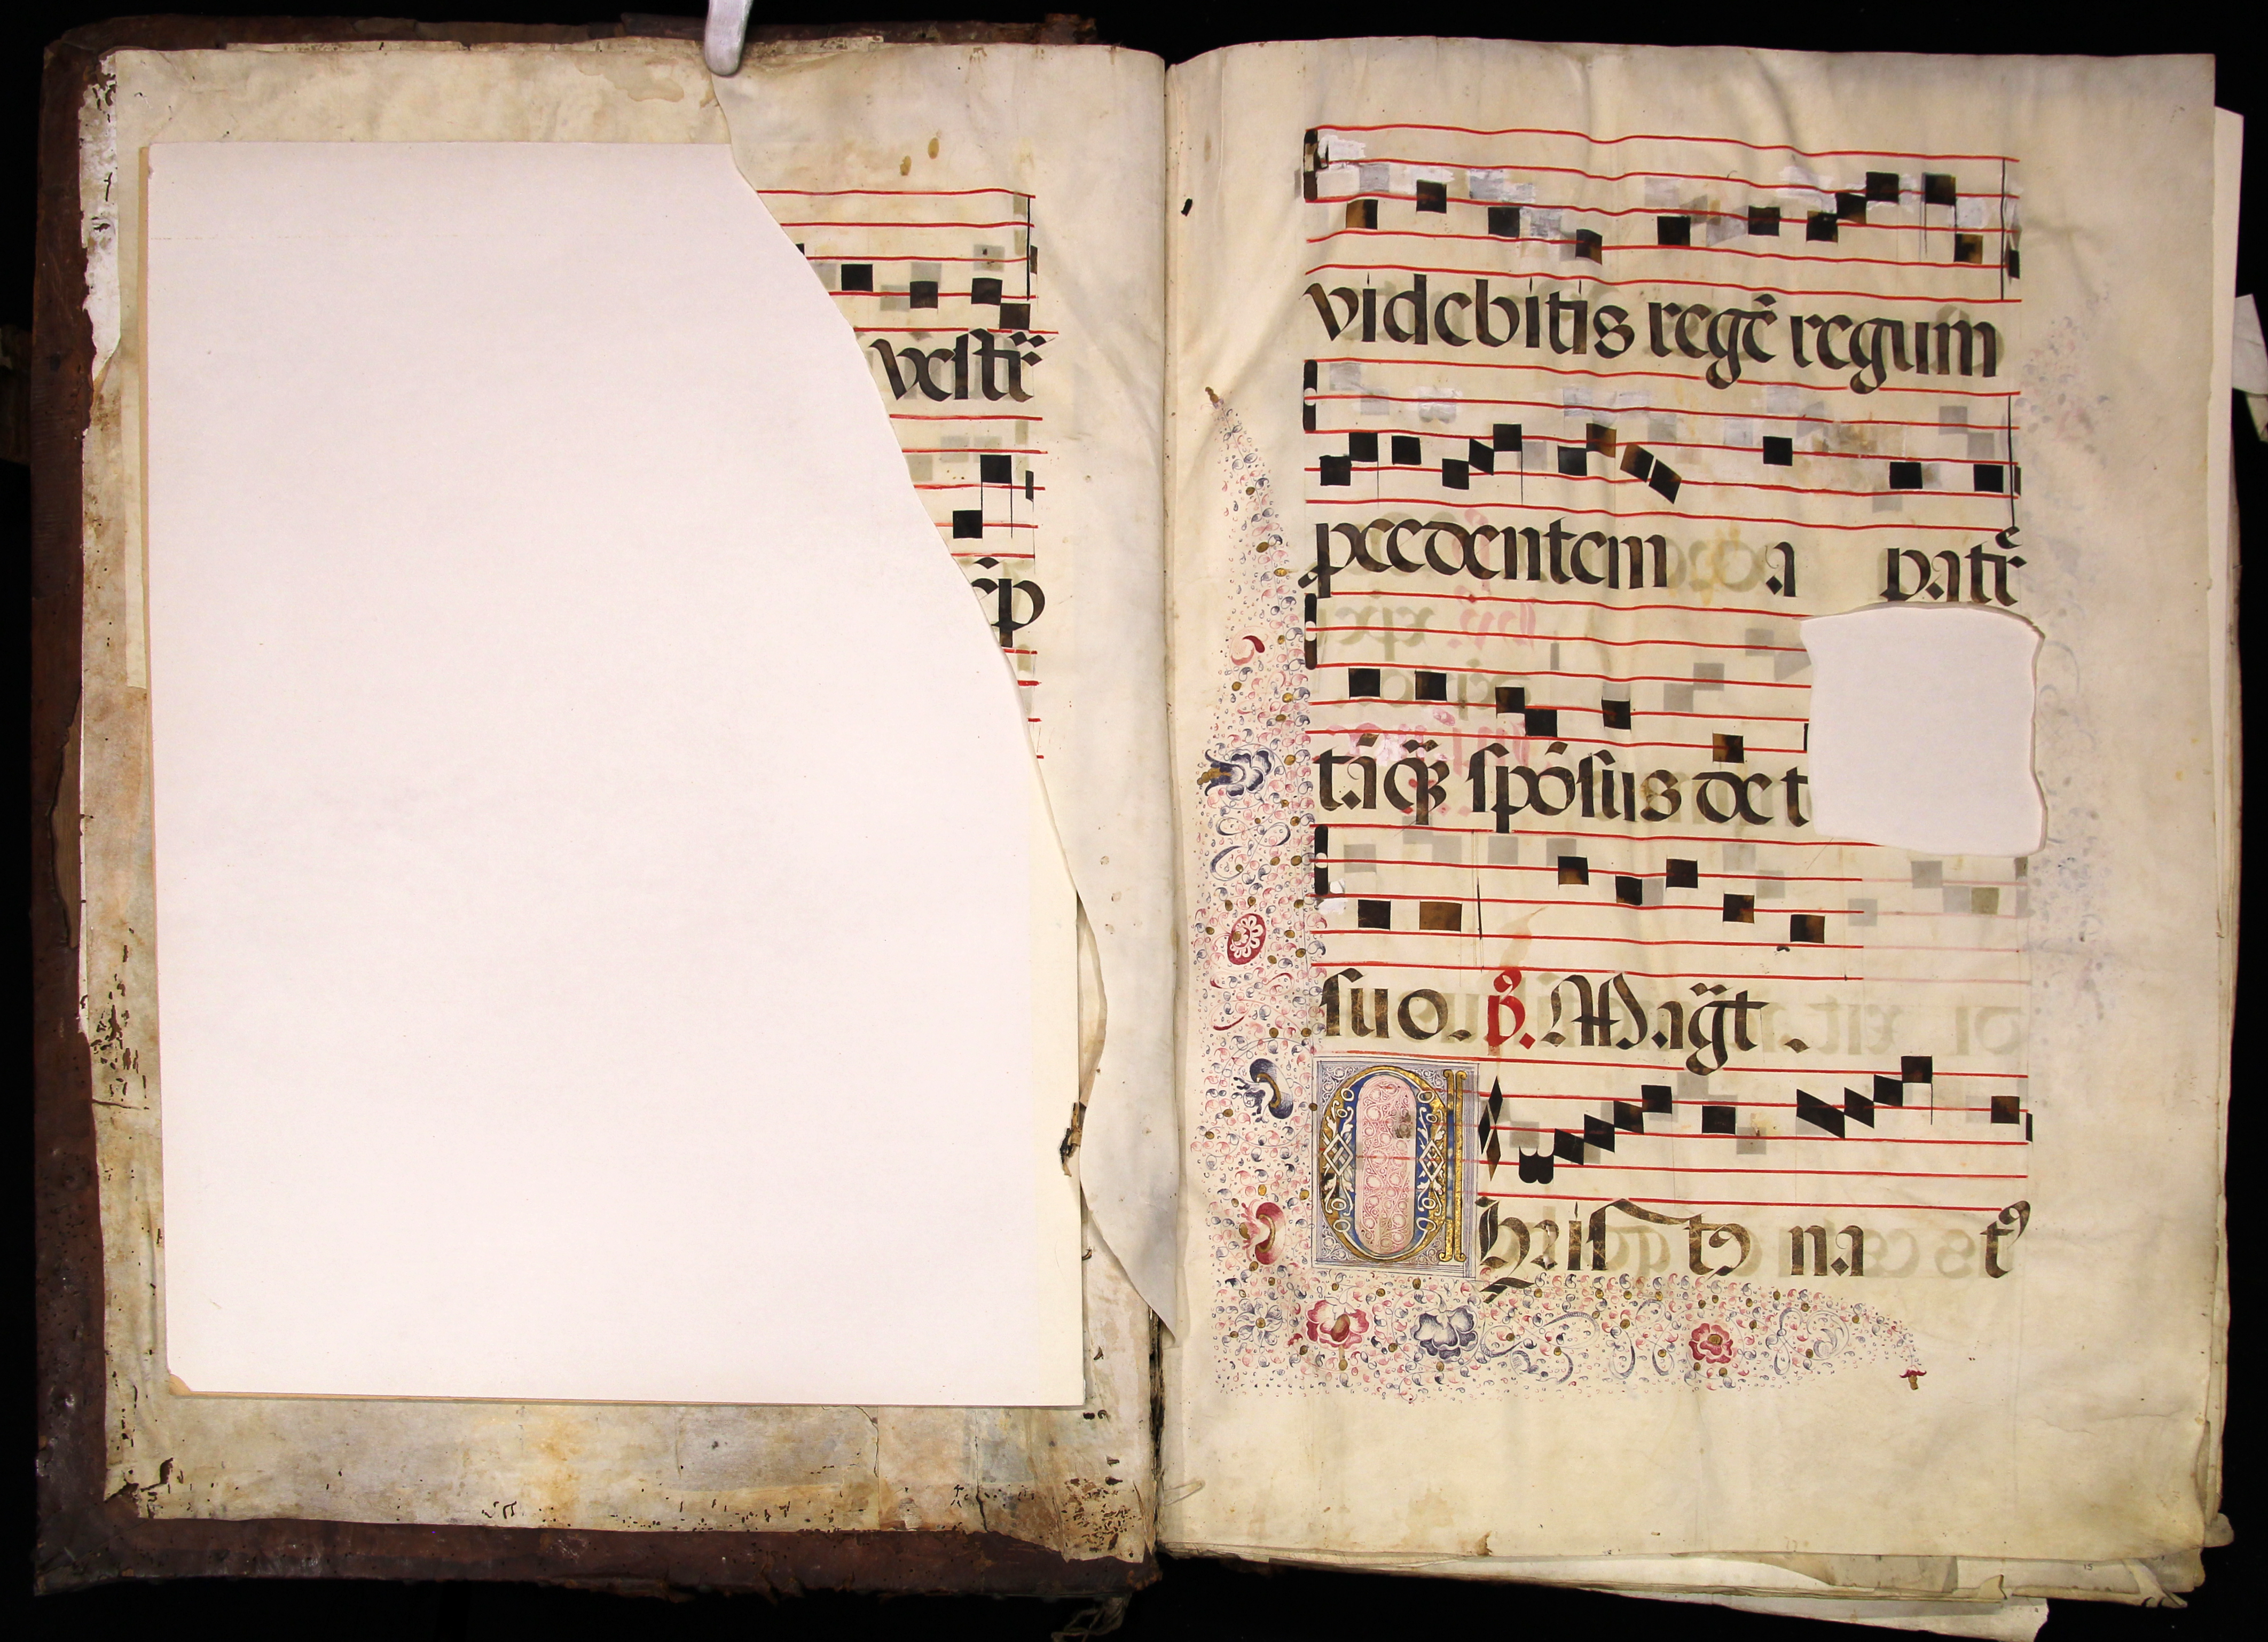 vestr̃
r̃p
videbitis regẽ regum
p̱cedentem a patr̃
tãq̃ꝫ spõsus de t
suo. ps̃. Mag̃t.
Christꝰ na tꝰ